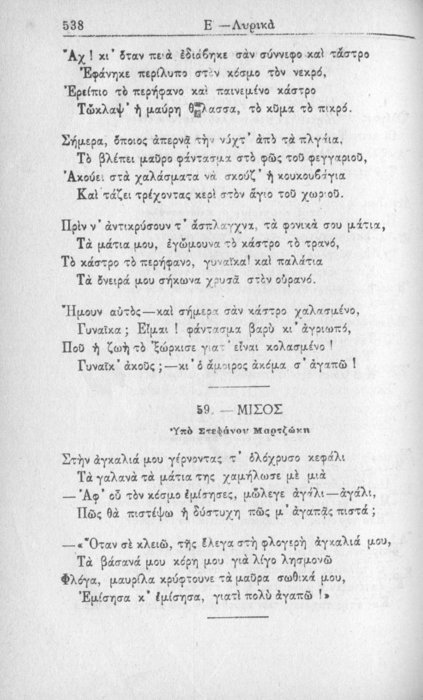 538 Ε —Λυρικὰ
Ἂχ ! κι' ὅταν πειὰ ἐδιάβηκε σὰν σύννεφο καὶ τἄστρο
Ἐφάνηκε περίλυπο στὸν κόσμο τὸν νεκρό,
Ἐρείπιο τὸ περήφανο καὶ παινεμένο κάστρο
Τὤκλαψ' ἡ μαύρη θάλασσα, τὸ κῦμα τὸ πικρό.
Σήμερα, ὅποιος ἀπερνᾷ τὴν νύχτ' ἀπὸ τὰ πλγάϊα,
Τὸ βλέπει μαῦρο φάντασμα στὸ φῶς τοῦ φεγγαριοῦ,
Ἀκούει στὰ χαλάσματα νὰ σκούζ' ἡ κουκουβάγια
Καὶ τάζει τρέχοντας κερὶ στὸν ἅγιο τοῦ χωριοῦ.
Πρὶν ν' ἀντικρύσουν τ' ἄσπλαγχνα, τὰ φονικά σου μάτια,
Τὰ μάτια μου, ἐγὤμουνα τὸ κάστρο τὸ τρανό,
Τὸ κάστρο τὸ περήφανο, γυναῖκα! καὶ παλάτια
Τὰ ὄνειρά μου σήκωνα χρυσᾶ στὸν οὐρανό.
Ἤμουν αὐτὸς—καὶ σήμερα σὰν κάστρο χαλασμένο,
Γυναῖκα ; Εἶμαι ! φάντασμα βαρὺ κι' ἀγριωπό,
Ποῦ ἡ ζωὴ τὸ ξώρκισε γιατ' εἶναι κολασμένο !
Γυναῖκ' ἀκοῦς ;—κι' ὁ ἄμοιρος ἀκόμα σ' ἀγαπῶ !
59. — ΜΙΣΟΣ
Ὑπὸ Στεφάνου Μαρτζώκη
Στὴν ἀγκαλιά μου γέρνοντας τ' ὁλόχρυσο κεφάλι
Τὰ γαλανὰ τὰ μάτια της χαμήλωσε μὲ μιὰ
— Ἀφ' οὗ τὸν κόσμο ἐμίσησες, μὤλεγε ἀγάλι—ἀγάλι,
Πῶς θὰ πιστέψω ἡ δύστυχη πῶς μ' ἀγαπᾷς πιστά ;
—«Ὅταν σὲ κλειῶ, τῆς ἔλεγα στὴ φλογερὴ ἀγκαλιά μου,
Τὰ βάσανά μου κόρη μου γιὰ λίγο λησμονῶ
Φλόγα, μαυρίλα κρύφτουνε τὰ μαῦρα σωθικά μου,
Ἐμίσησα κ' ἐμίσησα, γιατὶ πολὺ ἀγαπῶ !»